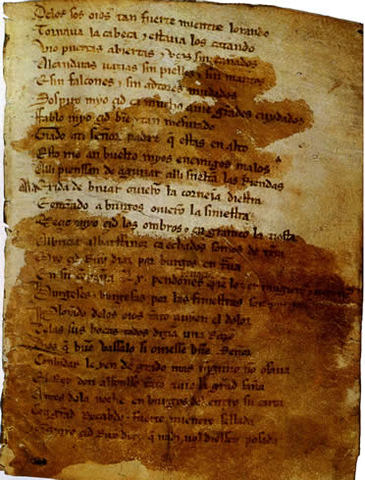 Delos sos oios tan fuerte mientre lorando
Tornaua la cabeça y estaua los catando
Vio puertas abiertas y vços sin cañados
Alcandaras uazias sin pielles y sin mantos
E sin falcones y sin adtores mudados
Sospiro myo çid ca mucho auie grandes cuidados
Fablo myo çid bien y tan mesurado
Grado ati señor padre que estas en alto
Esto me an buelto myos enemigos malos
Alli pienssan de aguijar alli sueltan las Riendas
Ala exida de biuar ouieron la corneia diestra
E entrando a burgos ouieron la siniestra
Meçio myo çid los ombros y en grameo la tiesta
Albricia albarffanez ca echados somos de tierra
Myo çid Ruy diaz por burgos entraua
En su conpaña .Lx. pendones
Burgeses y burgesas por las finiestras
Plorando delos oios tanto auien el dolor
Delas sus bocas todos dizian una Razon
Dios que buen vassalo si ouiesse buen Señor
Conbidar le yen de grado mas ninguno no osaua
El Rey don alfonsso tanto auie la grand saña
Antes dela noche en burgos del entro su carta
Con grand Recabdo y fuerte mientre sellada
Que a myo çid Ruy diaz que nadi nol diessen posada